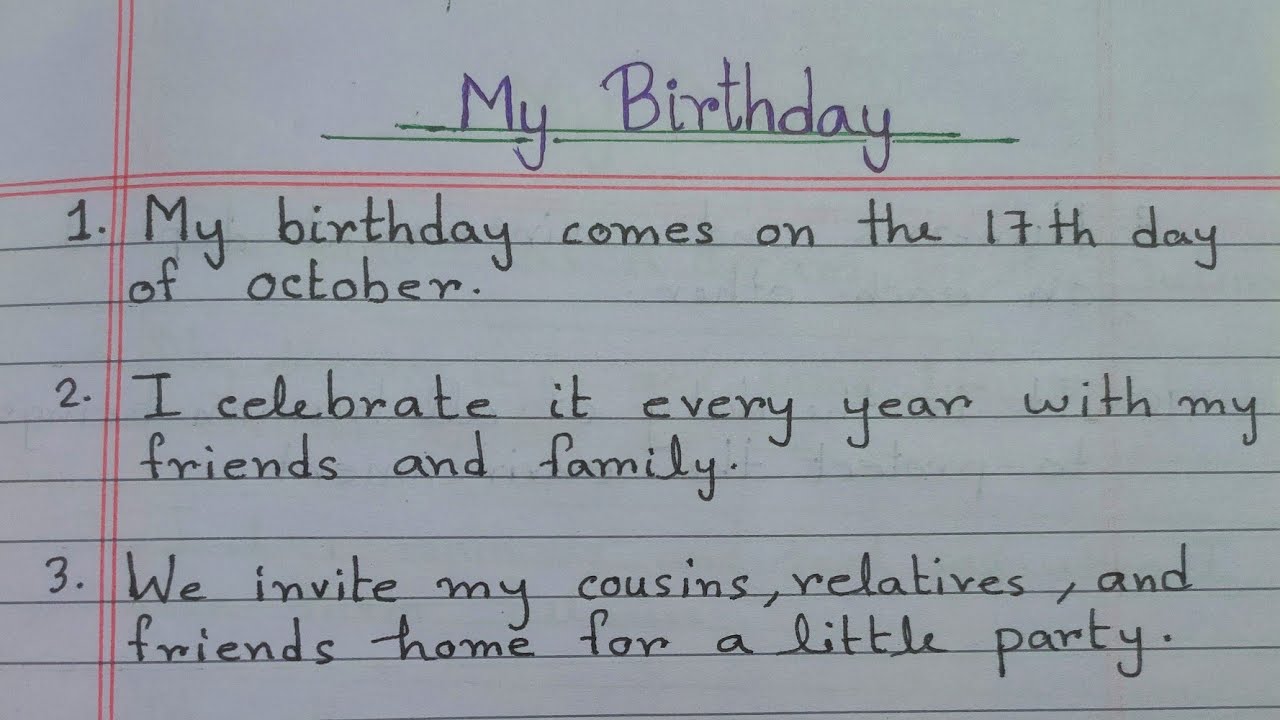 My Birthday
1. My birthday comes on the 17th day
of october.
2. I celebrate it every year with my
friends and family.
3. We invite my cousins, relatives, and
friends home for a little party.